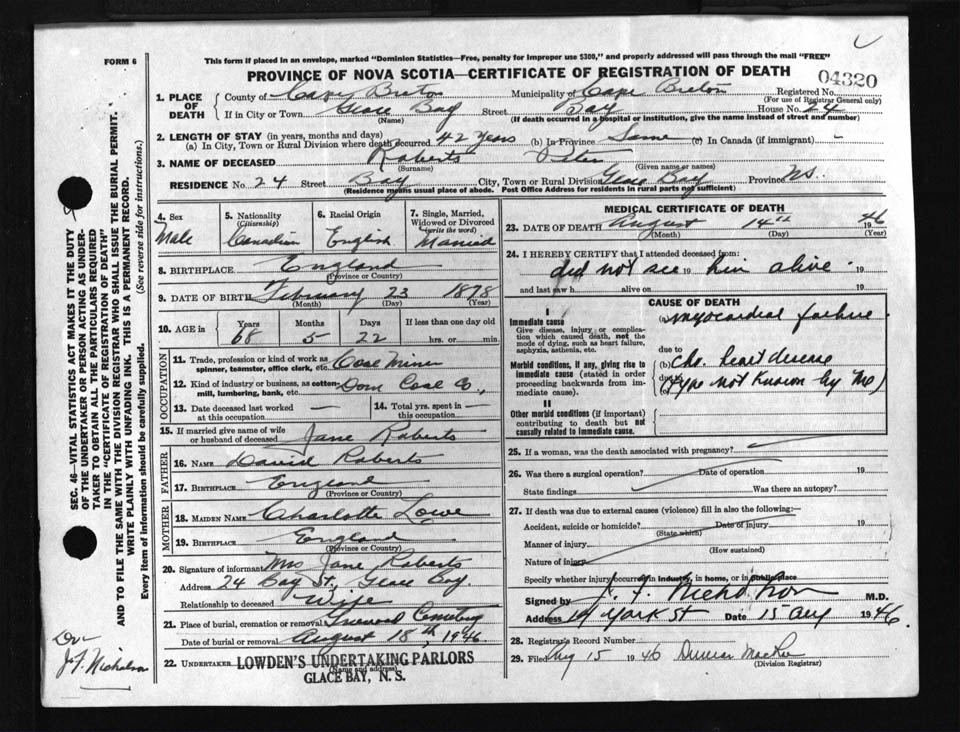 FORM 6
This form if placed in an envelope, marked "Dominion Statistics—Free, penalty for improper use $300," and properly addressed will pass through the mail "FREE"
PROVINCE OF NOVA SCOTIA—CERTIFICATE OF REGISTRATION OF DEATH
04320
1. PLACE OF DEATH
County of Cape Breton Municipality of Cape Breton Registered No.
(For use of Registrar General only)
If in City or Town Glace Bay Street Bay House No. 24
(Name) (If death occurred in a hospital or institution, give the name instead of street and number)
2. LENGTH OF STAY (in years, months and days)
(a) In City, Town or Rural Division where death occurred 42 years (b) In Province Same (c) In Canada (if immigrant) -
3. NAME OF DECEASED Roberts Peter
(Surname) (Given name or names)
RESIDENCE No. 24 Street Bay City, Town or Rural Division Glace Bay Province N.S.
(Residence means usual place of abode. Post Office Address for residents in rural parts not sufficient)
4. Sex Male
5. Nationality (Citizenship) Canadian
6. Racial Origin English
7. Single, Married, Widowed or Divorced (write the word) Married
8. BIRTHPLACE England
(Province or Country)
9. DATE OF BIRTH February 23 1878
(Month) (Day) (Year)
10. AGE in Years Months Days If less than one day old
68 5 22 hrs. or min.
OCCUPATION
11. Trade, profession or kind of work as spinner, teamster, office clerk, etc. Coal Miner
12. Kind of industry or business, as cotton mill, lumbering, bank, etc. Dom Coal Co.,
13. Date deceased last worked at this occupation —
14. Total yrs. spent in this occupation —
15. If married give name of wife or husband of deceased Jane Roberts
FATHER
16. NAME David Roberts
17. BIRTHPLACE England
(Province or Country)
MOTHER
18. MAIDEN NAME Charlotte Lowe
19. BIRTHPLACE England
(Province or Country)
20. Signature of informant Mrs Jane Roberts
Address 24 Bay St, Glace Bay
Relationship to deceased Wife
21. Place of burial, cremation or removal Cemetery
Date of burial or removal August 18th, 1946
22. UNDERTAKER LOWDEN'S UNDERTAKING PARLORS
(Name and address)
GLACE BAY, N. S.
MEDICAL CERTIFICATE OF DEATH
23. DATE OF DEATH August 14th 1946
(Month) (Day) (Year)
24. I HEREBY CERTIFY that I attended deceased from:
did not see 19 him alive 19
and last saw h alive on 19
CAUSE OF DEATH
I
Immediate cause
Give disease, injury or complication which caused death, not the mode of dying, such as heart failure, asphyxia, asthenia, etc.
(a) Myocardial failure
due to
Morbid conditions, if any, giving rise to immediate cause (stated in order proceeding backwards from immediate cause).
(b) Chr. heart disease
due to
(c) (Type not known by me)
II
Other morbid conditions (if important) contributing to death but not causally related to immediate cause.
25. If a woman, was the death associated with pregnancy?
26. Was there a surgical operation? Date of operation 19
State findings Was there an autopsy?
27. If death was due to external causes (violence) fill in also the following:—
Accident, suicide or homicide? Date of injury 19
(State which)
Manner of injury
(How sustained)
Nature of injury
Specify whether injury occurred in industry, in home, or in public place
Signed by J. F. Nicholson M.D.
Address York St Date 15 Aug 1946
28. Registrar's Record Number
29. Filed Aug 15 1946 Duncan MacRae
(Division Registrar)
SEC. 46—VITAL STATISTICS ACT MAKES IT THE DUTY
OF THE UNDERTAKER OR PERSON ACTING AS UNDER-
TAKER TO OBTAIN ALL THE PARTICULARS REQUIRED
IN THE "CERTIFICATE OF REGISTRATION OF DEATH"
AND TO FILE THE SAME WITH THE DIVISION REGISTRAR WHO SHALL ISSUE THE BURIAL PERMIT.
WRITE PLAINLY WITH UNFADING INK. THIS IS A PERMANENT RECORD.
Every item of information should be carefully supplied. (See reverse side for instructions.)
Dr
J.F. Nicholson